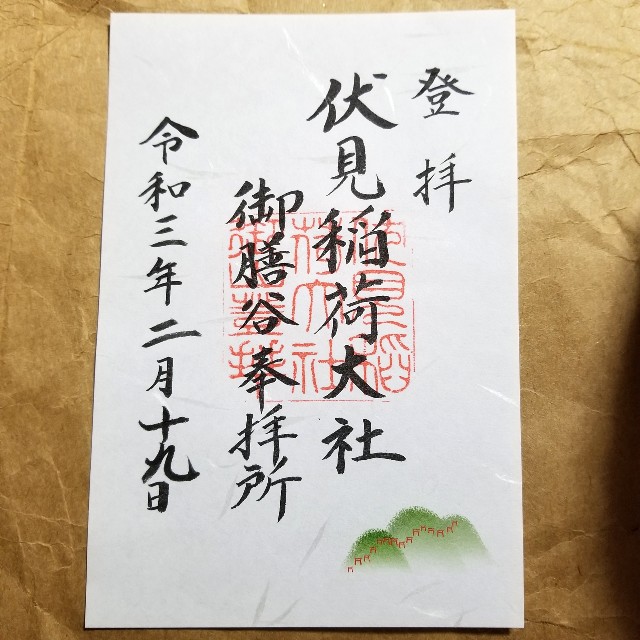 登拝
伏見稲荷大社
御膳谷奉拝所
令和三年二月十九日